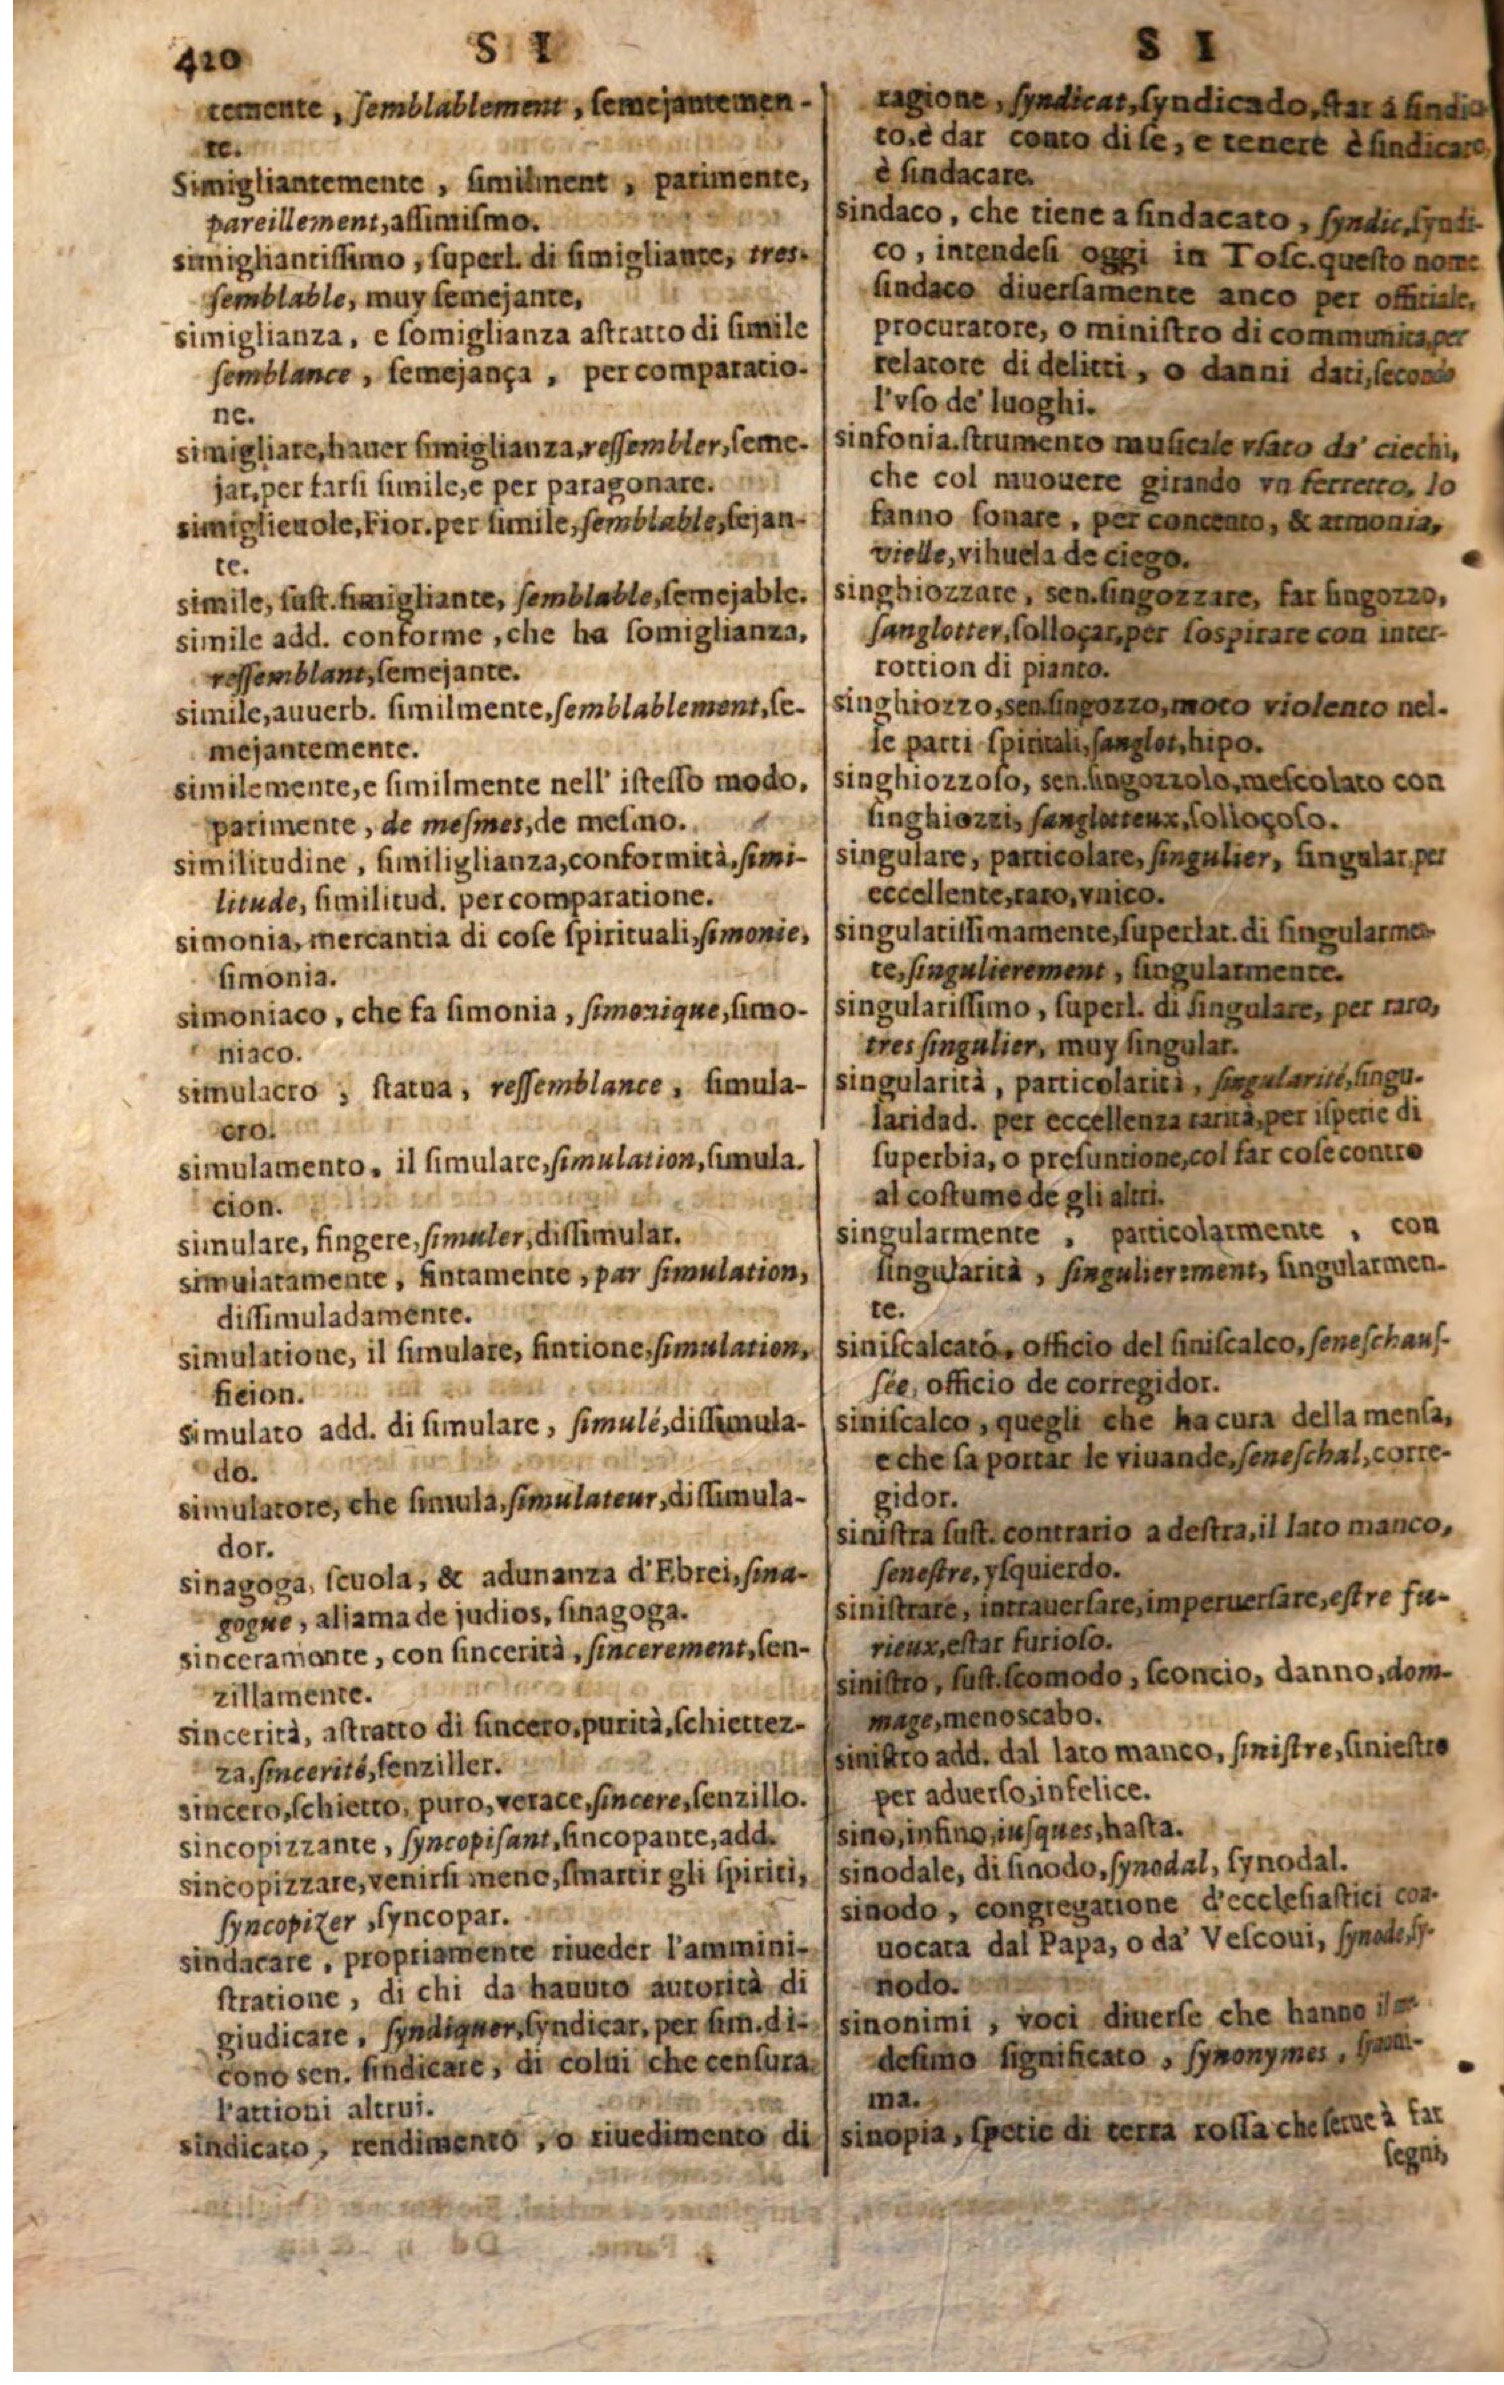 420
S I
S I
temente, ſemblablement, ſemejantemen-
te.
Simigliantemente, ſimilment, parimente,
pareillement, aſſimiſmo.
simigliantiſſimo, ſuperl. di ſimigliante, tres-
ſemblable, muy ſemejante,
simiglianza, e ſomiglianza aſtratto di ſimile
ſemblance, ſemejança, per comparatio-
ne.
simigliare, hauer ſimiglianza, reſſembler, ſeme-
jar, per farſi ſimile, e per paragonare.
simiglieuole, Fior. per ſimile, ſemblable, ſejan-
te.
simile, ſuſt. ſimigliante, ſemblable, ſemejable.
simile add. conforme, che ha ſomiglianza,
reſſemblant, ſemejante.
simile, auuerb. ſimilmente, ſemblablement, ſe-
mejantemente.
similemente, e ſimilmente nell' iſteſſo modo,
parimente, de meſmes, de meſmo.
similitudine, ſimiliglianza, conformità, ſimi-
litude, ſimilitud. per comparatione.
simonia, mercantia di coſe ſpirituali, ſimonie,
ſimonia.
simoniaco, che fa ſimonia, ſimonique, ſimo-
niaco.
simulacro, ſtatua, reſſemblance, ſimula-
cro.
simulamento, il ſimulare, ſimulation, ſimula-
cion.
simulare, fingere, ſimuler, diſſimular.
simulatamente, fintamente, par ſimulation,
diſſimuladamente.
simulatione, il ſimulare, fintione, ſimulation,
ficion.
simulato add. di ſimulare, ſimulé, diſſimula-
do.
simulatore, che ſimula, ſimulateur, diſſimula-
dor.
sinagoga, ſcuola, & adunanza d'Ebrei, ſina-
gogue, aljama de judios, ſinagoga.
sinceramente, con ſincerità, ſincerement, ſen-
zillamente.
sincerità, aſtratto di ſincero, purità, ſchiettez-
za, ſincerité, ſenziller.
sincero, ſchietto, puro, verace, ſincere, ſenzillo.
sincopizzante, ſyncopiſant, ſincopante, add.
sincopizzare, venirſi meno, ſmarrir gli ſpiriti,
ſyncopizer, ſyncopar.
sindacare, propriamente riueder l'ammini-
ſtratione, di chi da hauuto autorità di
giudicare, ſyndiquer, ſyndicar, per ſim. di-
cono sen. ſindicare, di colui che cenſura
l'attioni altrui.
sindicato, rendimento, o riuedimento di
ragione, ſyndicat, ſyndicado, ſtar à ſindica
to, è dar conto di ſe, e tenere è ſindicare,
è ſindacare.
sindaco, che tiene a ſindacato, ſyndic, ſyndi-
co, intendeſi oggi in Toſc. queſto nome
ſindaco diuerſamente anco per officiale,
procuratore, o miniſtro di communità, per
relatore di delitti, o danni dati, ſecondo
l'vſo de' luoghi.
sinfonia. ſtrumento muſicale vſato da' ciechi,
che col muouere girando vn ferretto, lo
fanno ſonare, per concento, & armonia,
vielle, vihuela de ciego.
singhiozzare, sen. ſingozzare, far ſingozzo,
ſanglotter, ſolloçar, per ſoſpirare con inter-
rottion di pianto.
singhiozzo, sen. ſingozzo, moto violento nel-
le parti ſpiritali, ſanglot, hipo.
singhiozzoſo, sen. ſingozzoſo, meſcolato con
ſinghiozzi, ſanglotteux, ſolloçoſo.
singulare, particolare, ſingulier, ſingular, per
eccellente, raro, vnico.
singulariſſimamente, ſuperlat. di ſingularmen-
te, ſingulierement, ſingularmente.
singulariſſimo, ſuperl. di ſingulare, per raro,
tres ſingulier, muy ſingular.
singularità, particolarità, ſingularité, ſingu-
laridad. per eccellenza rarità, per iſpetie di
ſuperbia, o preſuntione, col far coſe contro
al coſtume de gli altri.
singularmente, particolarmente, con
ſingularità, ſingulierement, ſingularmen-
te.
siniſcalcato, officio del ſiniſcalco, ſeneſchauſ-
ſée, officio de corregidor.
siniſcalco, quegli che ha cura della menſa,
e che fa portar le viuande, ſeneſchal, corre-
gidor.
siniſtra ſuſt. contrario a deſtra, il lato manco,
ſeneſtre, yſquierdo.
siniſtrare, intrauerſare, imperuerſare, eſtre fu-
rieux, eſtar furioſo.
siniſtro, ſuſt. ſcomodo, ſconcio, danno, dom-
mage, menoscabo.
siniſtro add. dal lato manco, ſiniſtre, ſinieſtro
per aduerſo, infelice.
sino, infino, iuſques, haſta.
sinodale, di ſinodo, ſynodal, ſynodal.
sinodo, congregatione d'eccleſiaſtici con-
uocata dal Papa, o da' Veſcoui, ſynode, ſy-
nodo.
sinonimi, voci diuerſe che hanno il me-
deſimo ſignificato, ſynonymes, ſynoni-
ma.
sinopia, ſpetie di terra roſſa che ſerue à far
ſegni,